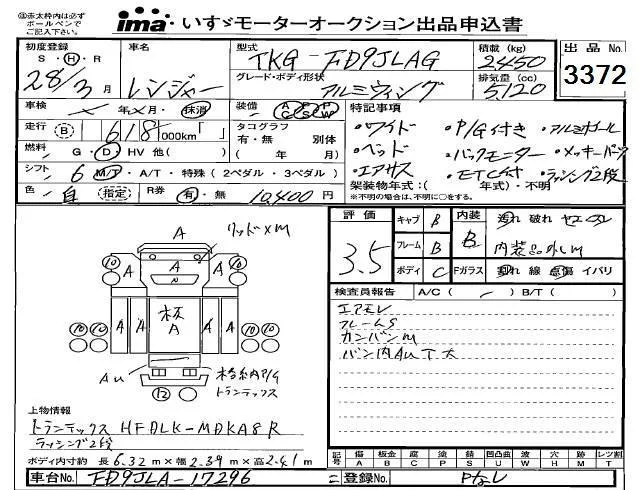 ㊟赤太枠内は必ず
ボールペンで
ご記入下さい。
ima いすゞモーターオークション出品申込書
初度登録 車名 型式 積載 (kg) 出品No.
S・H・R TKG-FD9JLAG 2450
28/3月 レンジャー グレード・ボディ形状 排気量 (cc) 3372
アルミウィング 5,120
車検 年 月・抹消 装備 AC PS PW 特記事項
走行 (B) 618 000km「 」 タコグラフ ・ワイド ・P/G付き ・アルミホイール
有・無 別体
燃料 G・D・HV 他( ) ( 年 月) ・ベッド ・バックモニター ・メッキパーツ
シフト 6 M/T・A/T・特殊(2ペダル・3ペダル) ・エアサス ・ETC付 ・ラッシング2段
架装物年式:( 年式)・不明
色 白 (指定) R券 有・無 10,400円 ※不明の場合は、不明に○をする。
評価 キャブ B 内装 破れ
3.5 フレーム B B 内装品外しM
ボディ C Fガラス 割れ 線 点傷 イバリ
検査員報告 A/C( ) B/T( )
エアモレ
フレームS
カンバンM
バン内AUT大
A リッドXM
⑩ A A A ⑩
N
A A 板 A A A
⑩⑩ ⑩⑩
AU 格納P/G
⑫ トランテックス
上物情報
トランテックス HFDLK-MDKA8R
ラッシング2段
ボディ内寸約 長 6.32 m×幅 2.39 m×高 2.41 m
記号 傷 板金 腐 塗 錆 凹凸曲 波 穴 時 レツ割
A B C P S U W H M T
車台No. FD9JLA-17296 登録No. Pなし